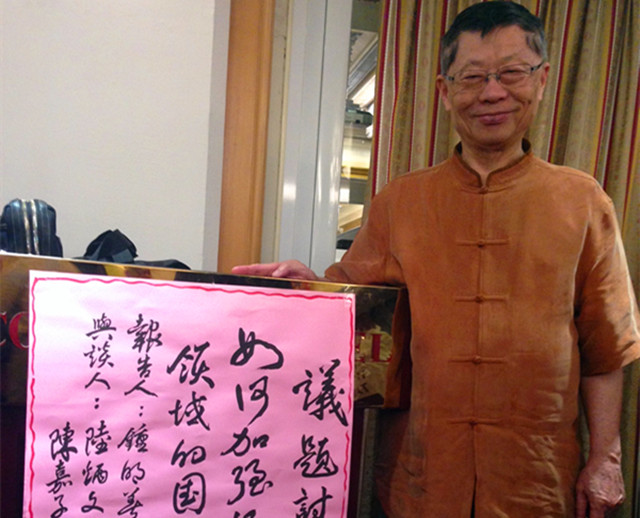 議題討
如何加强
领域的国
報告人：鍾明善
與談人：陸炳文
陳嘉子